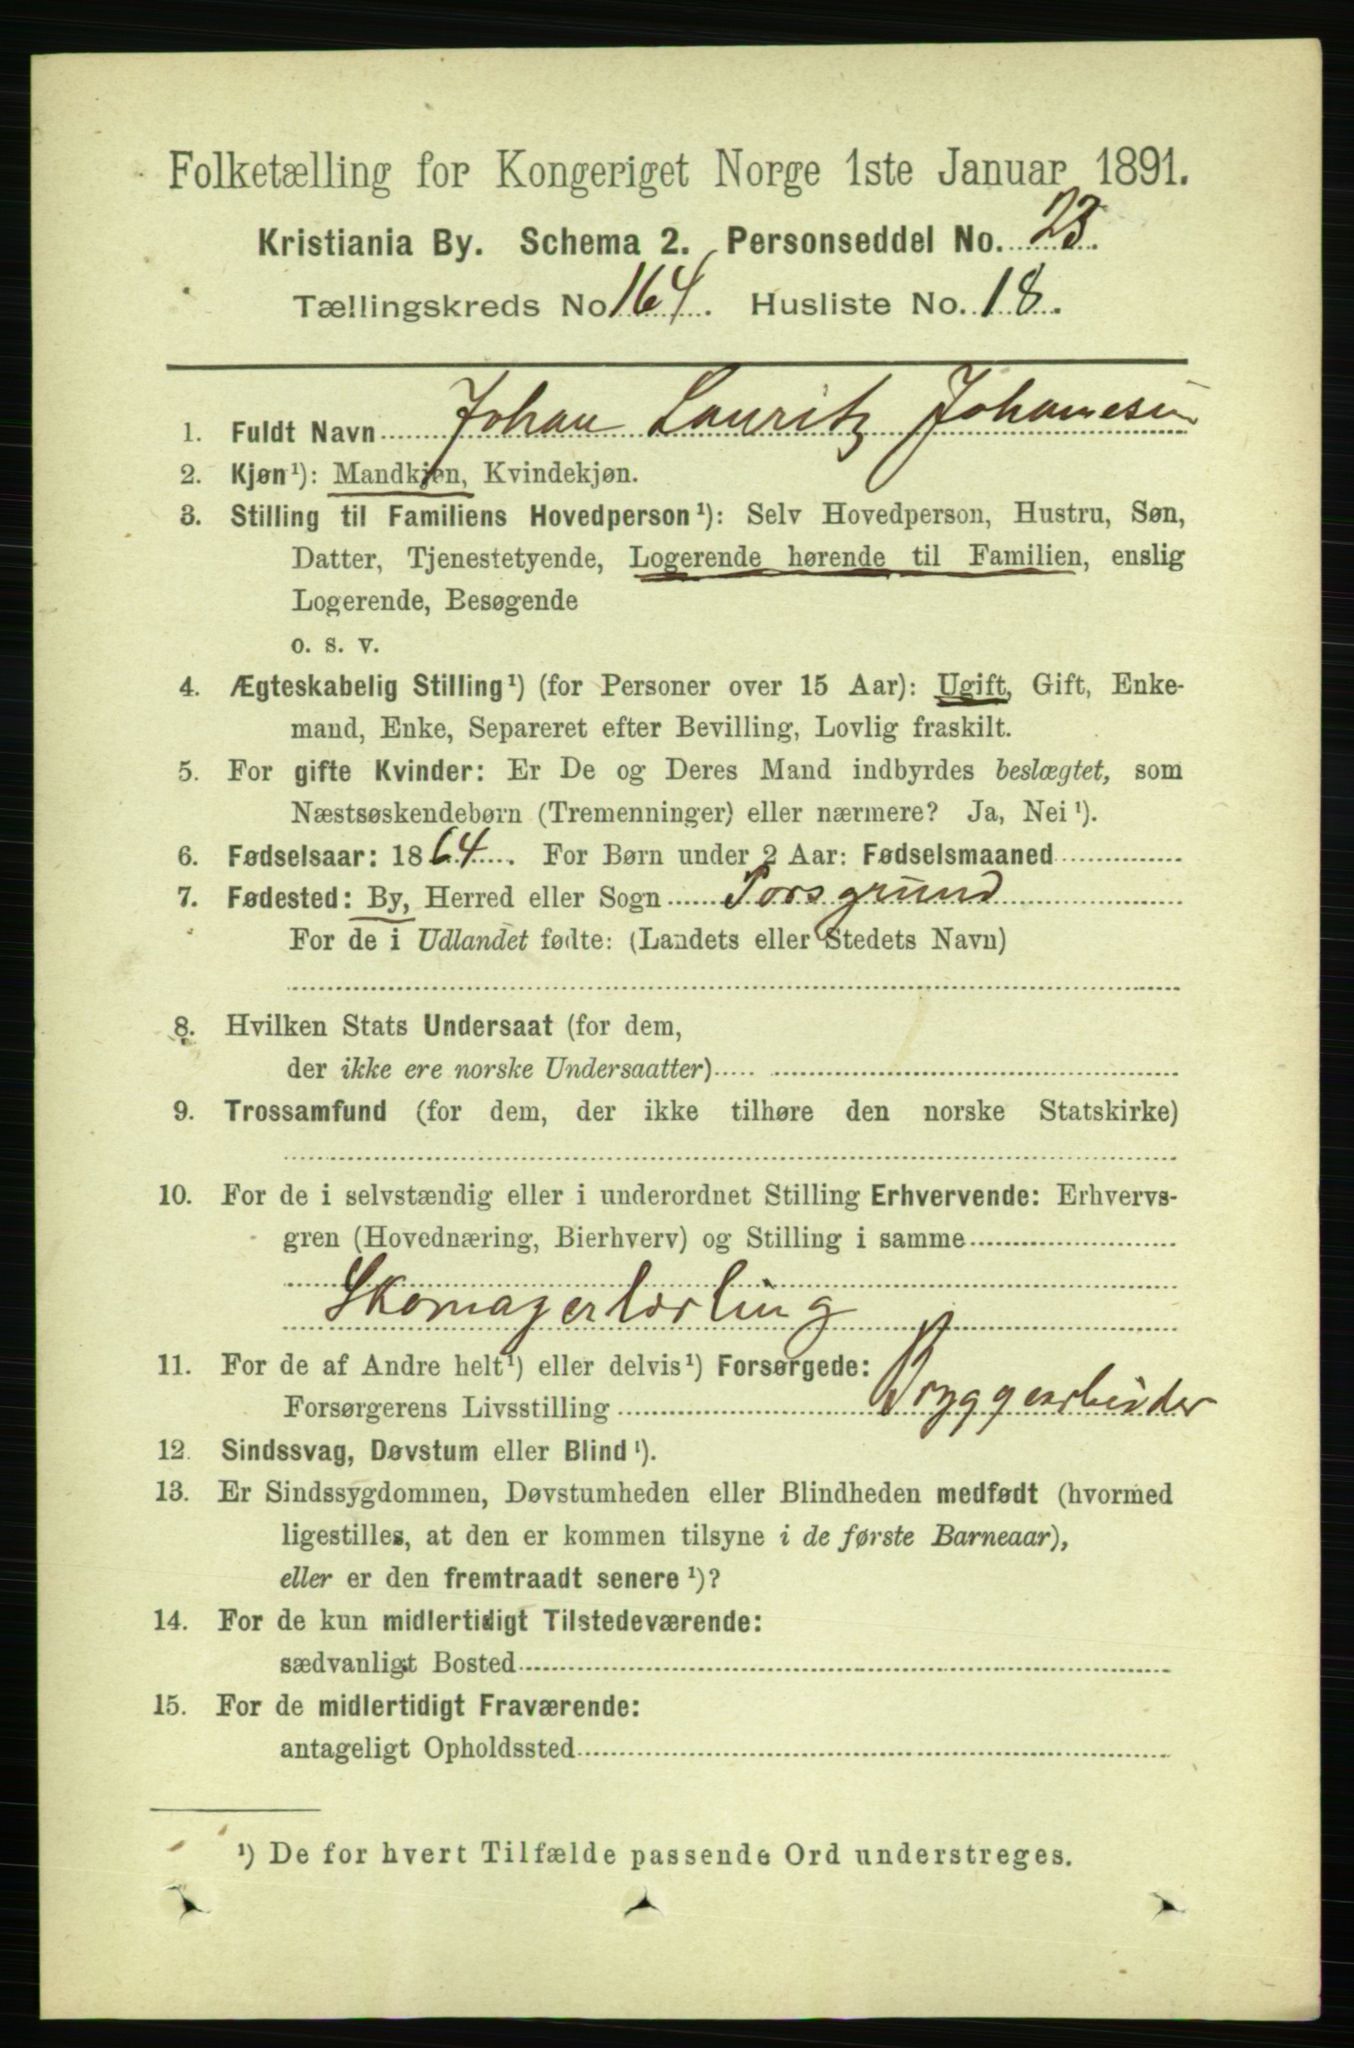 Folketælling for Kongeriget Norge 1ste Januar 1891.
Kristiania By. Schema 2. Personseddel No. 23.
Tællingskreds No 164. Husliste No. 18.
1. Fuldt Navn Johan Lauritz Johannesen
2. Kjøn¹): Mandkjøn, Kvindekjøn.
3. Stilling til Familiens Hovedperson¹): Selv Hovedperson, Hustru, Søn,
Datter, Tjenestetyende, Logerende hørende til Familien, enslig
Logerende, Besøgende
o. s. v.
4. Ægteskabelig Stilling¹) (for Personer over 15 Aar): Ugift, Gift, Enke-
mand, Enke, Separeret efter Bevilling, Lovlig fraskilt.
5. For gifte Kvinder: Er De og Deres Mand indbyrdes beslægtet, som
Næstsøskendebørn (Tremenninger) eller nærmere? Ja, Nei¹).
6. Fødselsaar: 1864. For Børn under 2 Aar: Fødselsmaaned
7. Fødested: By, Herred eller Sogn Porsgrund
For de i Udlandet fødte: (Landets eller Stedets Navn)
8. Hvilken Stats Undersaat (for dem,
der ikke ere norske Undersaatter)
9. Trossamfund (for dem, der ikke tilhøre den norske Statskirke)
10. For de i selvstændig eller i underordnet Stilling Erhvervende: Erhvervs-
gren (Hovednæring, Bierhverv) og Stilling i samme
Skomagerlærling
11. For de af Andre helt¹) eller delvis¹) Forsørgede:
Forsørgerens Livsstilling Bryggearbeider
12. Sindssvag, Døvstum eller Blind¹).
13. Er Sindssygdommen, Døvstumheden eller Blindheden medfødt (hvormed
ligestilles, at den er kommen tilsyne i de første Barneaar),
eller er den fremtraadt senere¹)?
14. For de kun midlertidigt Tilstedeværende:
sædvanligt Bosted
15. For de midlertidigt Fraværende:
antageligt Opholdssted
¹) De for hvert Tilfælde passende Ord understreges.